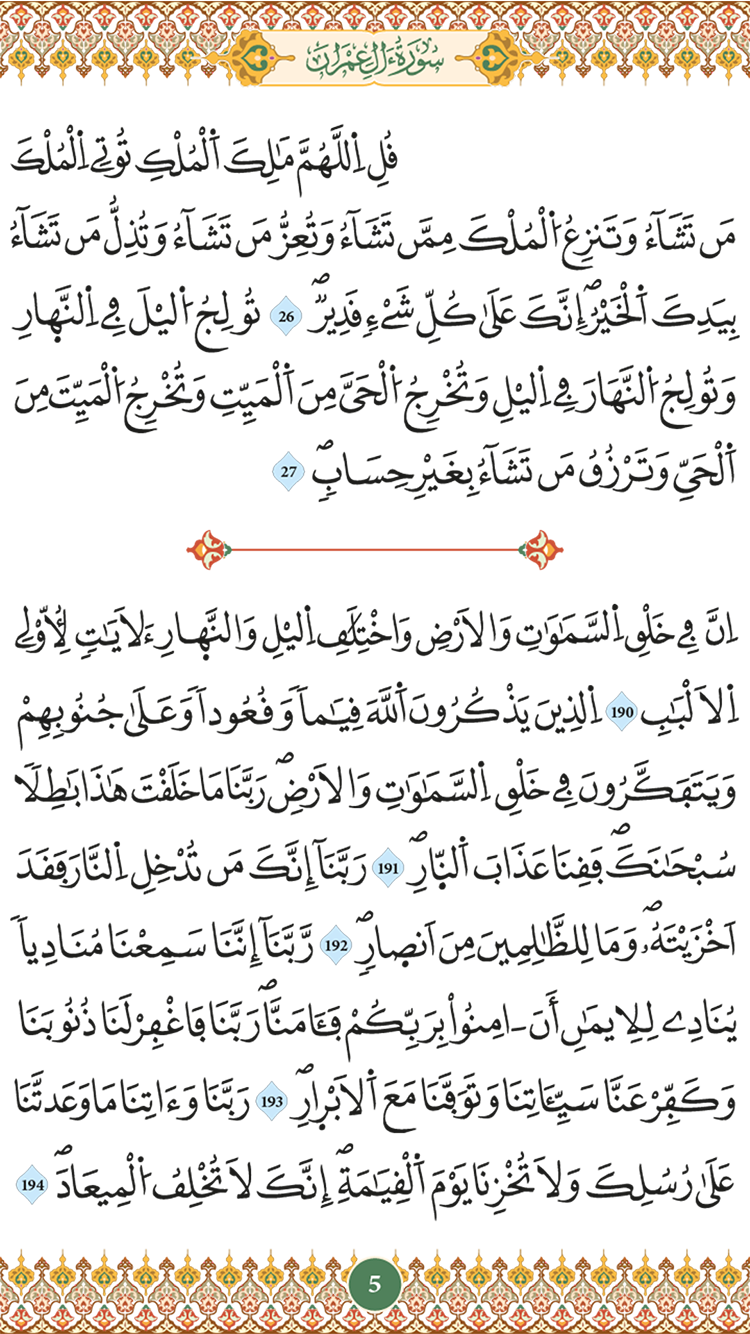 سُورَةُ ءَالِ عِمْرَانَ
قُلِ اِ۬للَّهُمَّ مَٰلِكَ اَ۬لْمُلْكِ تُوتِے اِ۬لْمُلْكَ
مَن تَشَآءُ وَتَنزِعُ اُ۬لْمُلْكَ مِمَّن تَشَآءُ وَتُعِزُّ مَن تَشَآءُ وَتُذِلُّ مَن تَشَآءُ
بِيَدِكَ اَ۬لْخَيْرُۖ إِنَّكَ عَلَىٰ كُلِّ شَےْءٖ قَدِيرٞۖ 26 تُولِجُ اُ۬ليْلَ فِے اِ۬لنَّه۪ارِ
وَتُولِجُ اُ۬لنَّهَارَ فِے اِ۬ليْلِ وَتُخْرِجُ اُ۬لْحَيَّ مِنَ اَ۬لْمَيِّتِ وَتُخْرِجُ اُ۬لْمَيِّتَ مِنَ
اَ۬لْحَيِّ وَتَرْزُقُ مَن تَشَآءُ بِغَيْرِ حِسَابٖۖ 27
اِنَّ فِے خَلْقِ اِ۬لسَّمَٰوَٰتِ وَالَارْضِ وَاخْتِلَٰفِ اِ۬ليْلِ وَالنَّه۪ارِ ءَلَايَٰتٖ لِّأُوْلِے
اِ۬لَالْبَٰبِ 190 اِ۬لذِينَ يَذْكُرُونَ اَ۬للَّهَ قِيَٰماٗ وَقُعُوداٗ وَعَلَىٰ جُنُوبِهِمْ
وَيَتَفَكَّرُونَ فِے خَلْقِ اِ۬لسَّمَٰوَٰتِ وَالَارْضِۖ رَبَّنَا مَا خَلَقْتَ هَٰذَا بَٰطِلاٗ
سُبْحَٰنَكَۖ فَقِنَا عَذَابَ اَ۬لنّ۪ارِۖ 191 رَبَّنَآ إِنَّكَ مَن تُدْخِلِ اِ۬لنَّارَ فَقَدَ
اَخْزَيْتَهُۥۖ وَمَا لِلظَّٰلِمِينَ مِنَ اَنص۪ارٖۖ 192 رَّبَّنَآ إِنَّنَا سَمِعْنَا مُنَادِياٗ
يُنَادِے لِلِايمَٰنِ أَنَ ـ امِنُواْ بِرَبِّكُمْ فَـَٔامَنَّاۖ رَبَّنَا فَاغْفِرْ لَنَا ذُنُوبَنَا
وَكَفِّرْ عَنَّا سَيِّـَٔاتِنَا وَتَوَفَّنَا مَعَ اَ۬لَابْر۪ارِۖ 193 رَبَّنَا وَءَاتِنَا مَا وَعَدتَّنَا
عَلَىٰ رُسُلِكَ وَلَا تُخْزِنَا يَوْمَ اَ۬لْقِيَٰمَةِۖ إِنَّكَ لَا تُخْلِفُ اُ۬لْمِيعَادَۖ 194
5